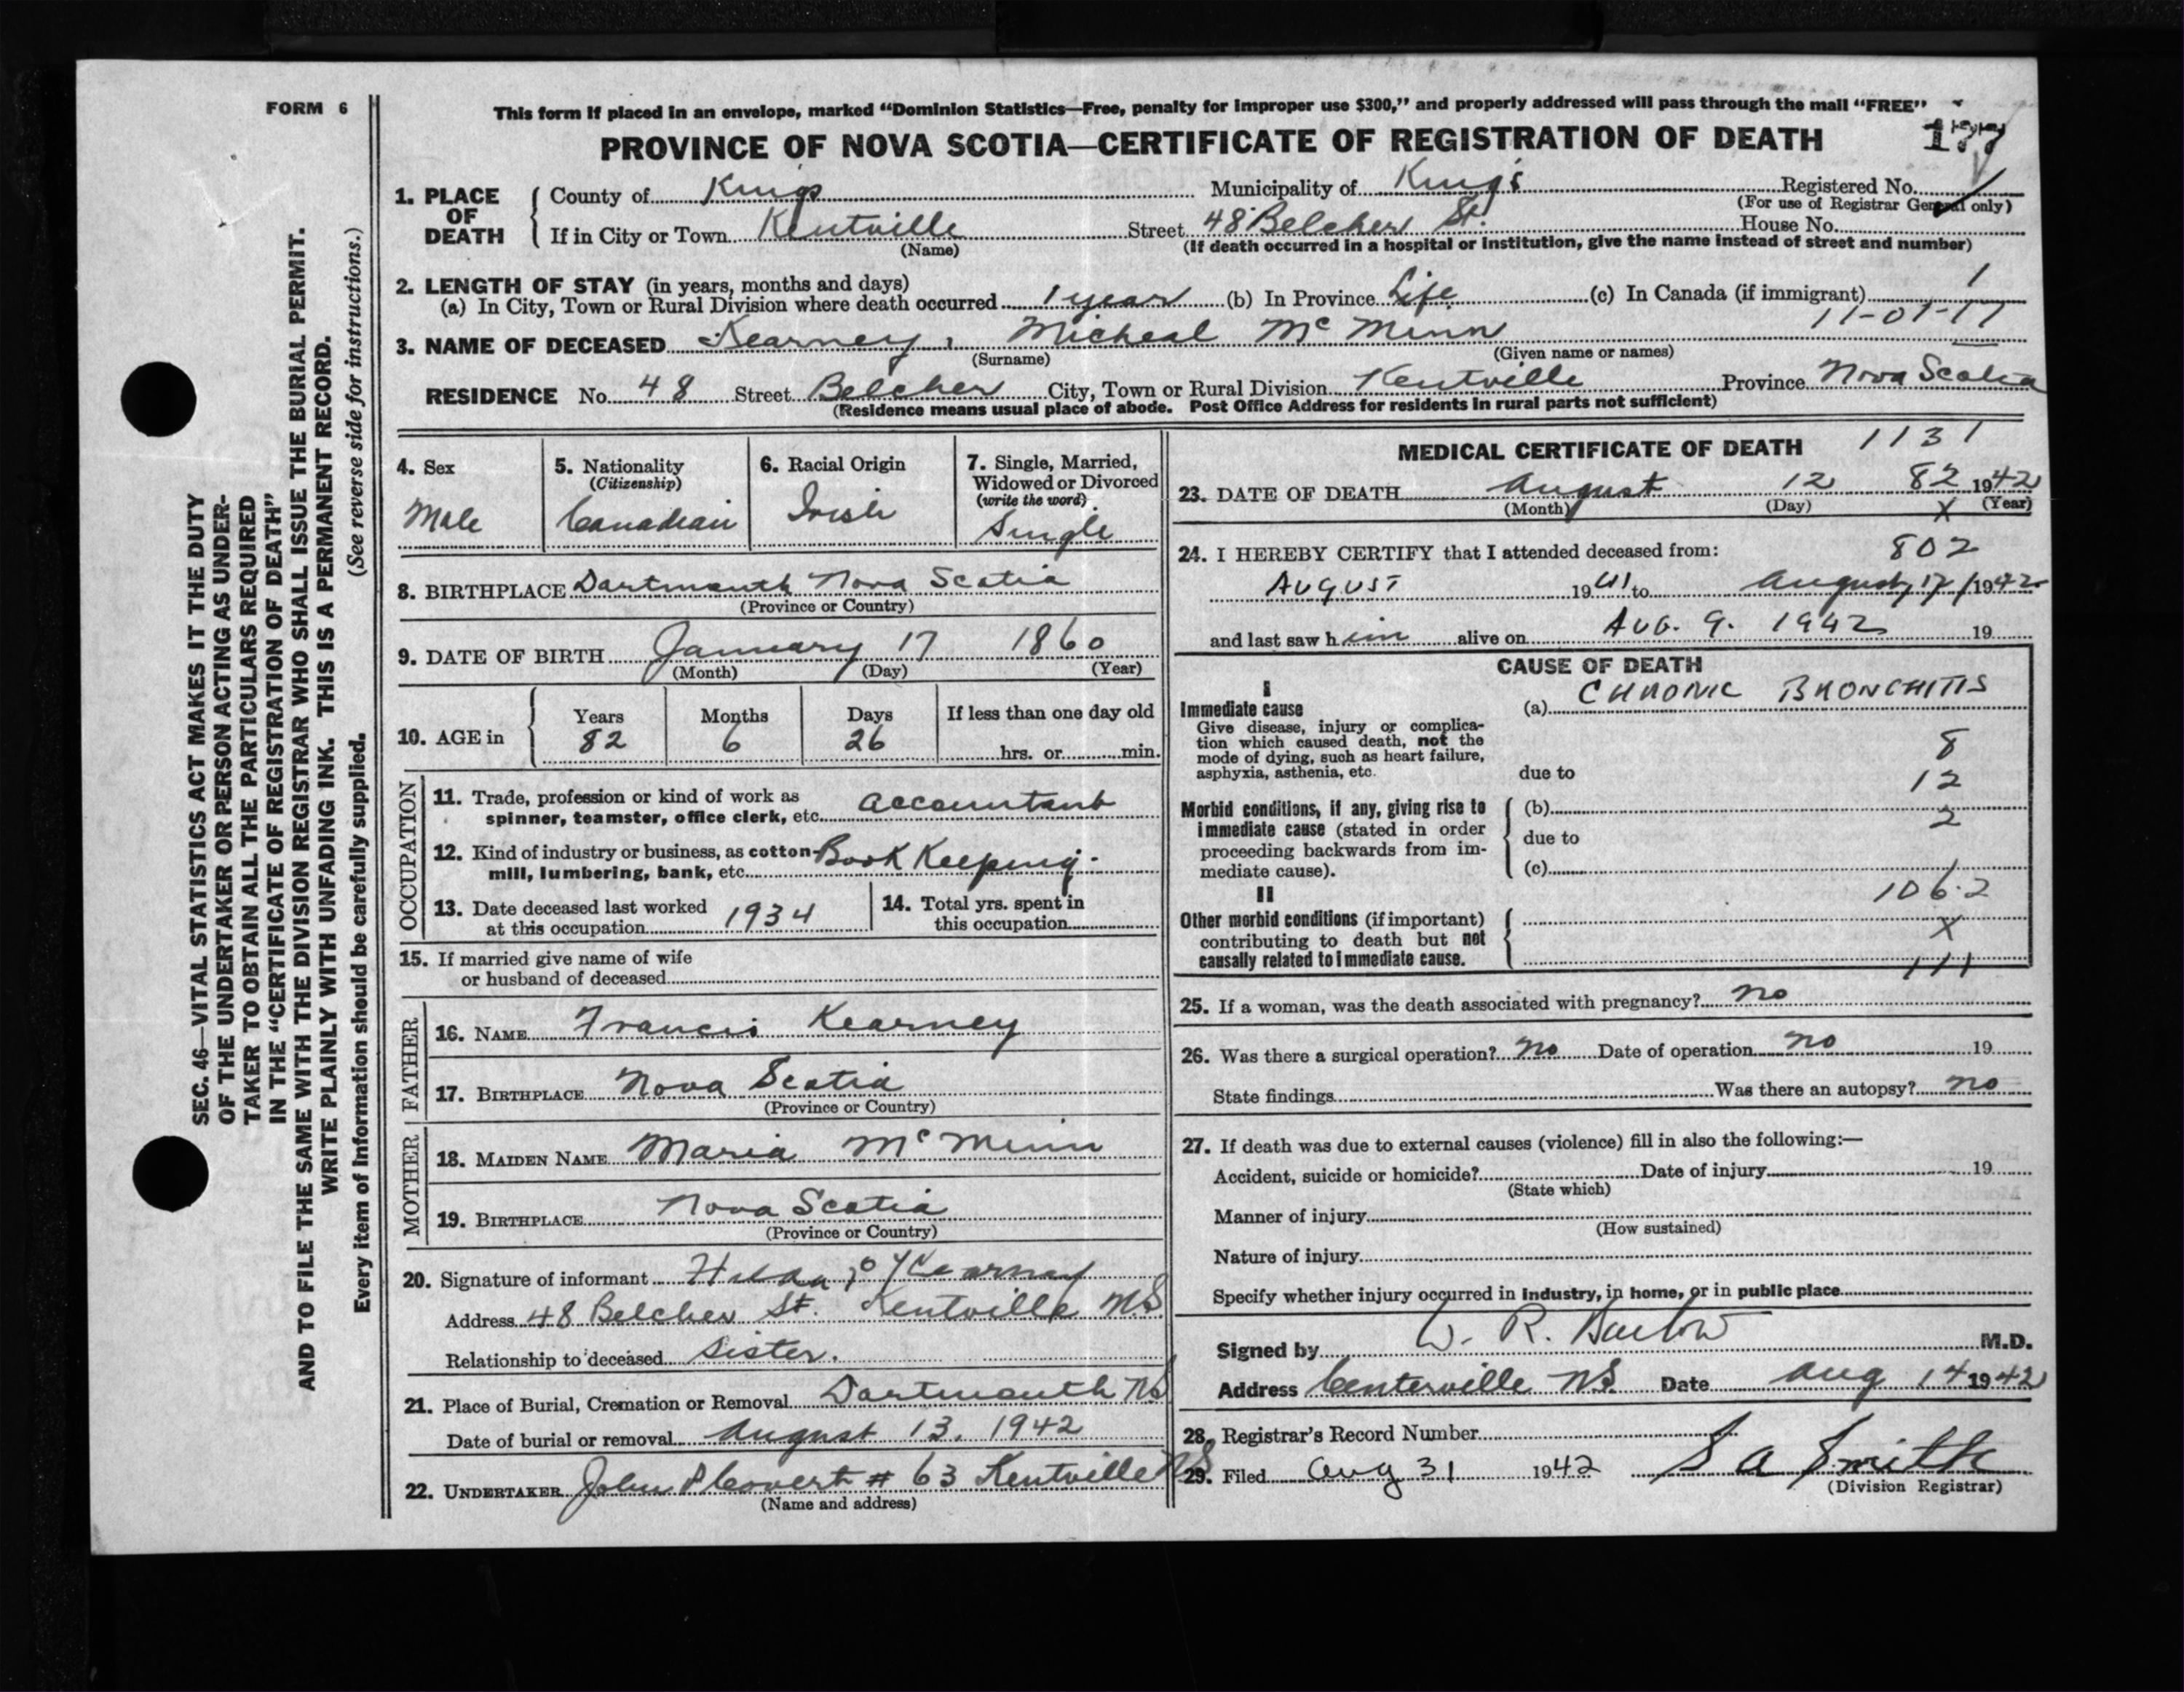 FORM 6
This form if placed in an envelope, marked “Dominion Statistics—Free, penalty for improper use $300,” and properly addressed will pass through the mail “FREE”
PROVINCE OF NOVA SCOTIA—CERTIFICATE OF REGISTRATION OF DEATH 177
1. PLACE OF DEATH
County of Kings Municipality of King's Registered No.
(For use of Registrar General only)
If in City or Town Kentville Street 48 Belcher St. House No.
(Name) (If death occurred in a hospital or institution, give the name instead of street and number)
2. LENGTH OF STAY (in years, months and days)
(a) In City, Town or Rural Division where death occurred 1 year (b) In Province Life (c) In Canada (if immigrant) 1
11-01-17
3. NAME OF DECEASED Kearney, Micheal Mc Minn
(Surname) (Given name or names)
RESIDENCE No. 48 Street Belcher City, Town or Rural Division Kentville Province Nova Scotia
(Residence means usual place of abode. Post Office Address for residents in rural parts not sufficient)
4. Sex
Male
5. Nationality
(Citizenship)
Canadian
6. Racial Origin
Irish
7. Single, Married,
Widowed or Divorced
(write the word)
Single
8. BIRTHPLACE Dartmouth Nova Scotia
(Province or Country)
9. DATE OF BIRTH January 17 1860
(Month) (Day) (Year)
10. AGE in
Years Months Days If less than one day old
82 6 26 hrs. or min.
OCCUPATION
11. Trade, profession or kind of work as
spinner, teamster, office clerk, etc. accountant
12. Kind of industry or business, as cotton-
mill, lumbering, bank, etc. Book Keeping.
13. Date deceased last worked
at this occupation 1934
14. Total yrs. spent in
this occupation
15. If married give name of wife
or husband of deceased
FATHER
16. NAME Francis Kearney
17. BIRTHPLACE Nova Scotia
(Province or Country)
MOTHER
18. MAIDEN NAME Maria Mc Minn
19. BIRTHPLACE Nova Scotia
(Province or Country)
20. Signature of informant Kearney
Address 48 Belcher St. Kentville N.S
Relationship to deceased Sister.
21. Place of Burial, Cremation or Removal Dartmouth NS
Date of burial or removal August 13, 1942
22. UNDERTAKER John P Covert # 63 Kentville NS
(Name and address)
MEDICAL CERTIFICATE OF DEATH 1131
23. DATE OF DEATH August 12 82 1942
(Month) (Day) X (Year)
24. I HEREBY CERTIFY that I attended deceased from: 802
AUGUST 1941 to August 12/1942
and last saw him alive on AUG. 9. 1942 19
CAUSE OF DEATH
I
Immediate cause
Give disease, injury or complica-
tion which caused death, not the
mode of dying, such as heart failure,
asphyxia, asthenia, etc.
(a) CHRONIC BRONCHITIS
8
due to
12
Morbid conditions, if any, giving rise to
immediate cause (stated in order
proceeding backwards from im-
mediate cause).
(b)
2
due to
(c)
106.2
II
Other morbid conditions (if important)
contributing to death but not
causally related to immediate cause.
X
111
25. If a woman, was the death associated with pregnancy? no
26. Was there a surgical operation? no Date of operation no 19
State findings Was there an autopsy? no
27. If death was due to external causes (violence) fill in also the following:—
Accident, suicide or homicide? Date of injury 19
(State which)
Manner of injury
(How sustained)
Nature of injury
Specify whether injury occurred in industry, in home, or in public place
Signed by W. R. Barlow M.D.
Address Centerville N.S. Date Aug 14 1942
28. Registrar's Record Number
29. Filed Aug 31 1942 S A Smith
(Division Registrar)
SEC. 46—VITAL STATISTICS ACT MAKES IT THE DUTY
OF THE UNDERTAKER OR PERSON ACTING AS UNDER-
TAKER TO OBTAIN ALL THE PARTICULARS REQUIRED
IN THE “CERTIFICATE OF REGISTRATION OF DEATH”
AND TO FILE THE SAME WITH THE DIVISION REGISTRAR WHO SHALL ISSUE THE BURIAL PERMIT.
WRITE PLAINLY WITH UNFADING INK. THIS IS A PERMANENT RECORD.
Every item of Information should be carefully supplied. (See reverse side for instructions.)